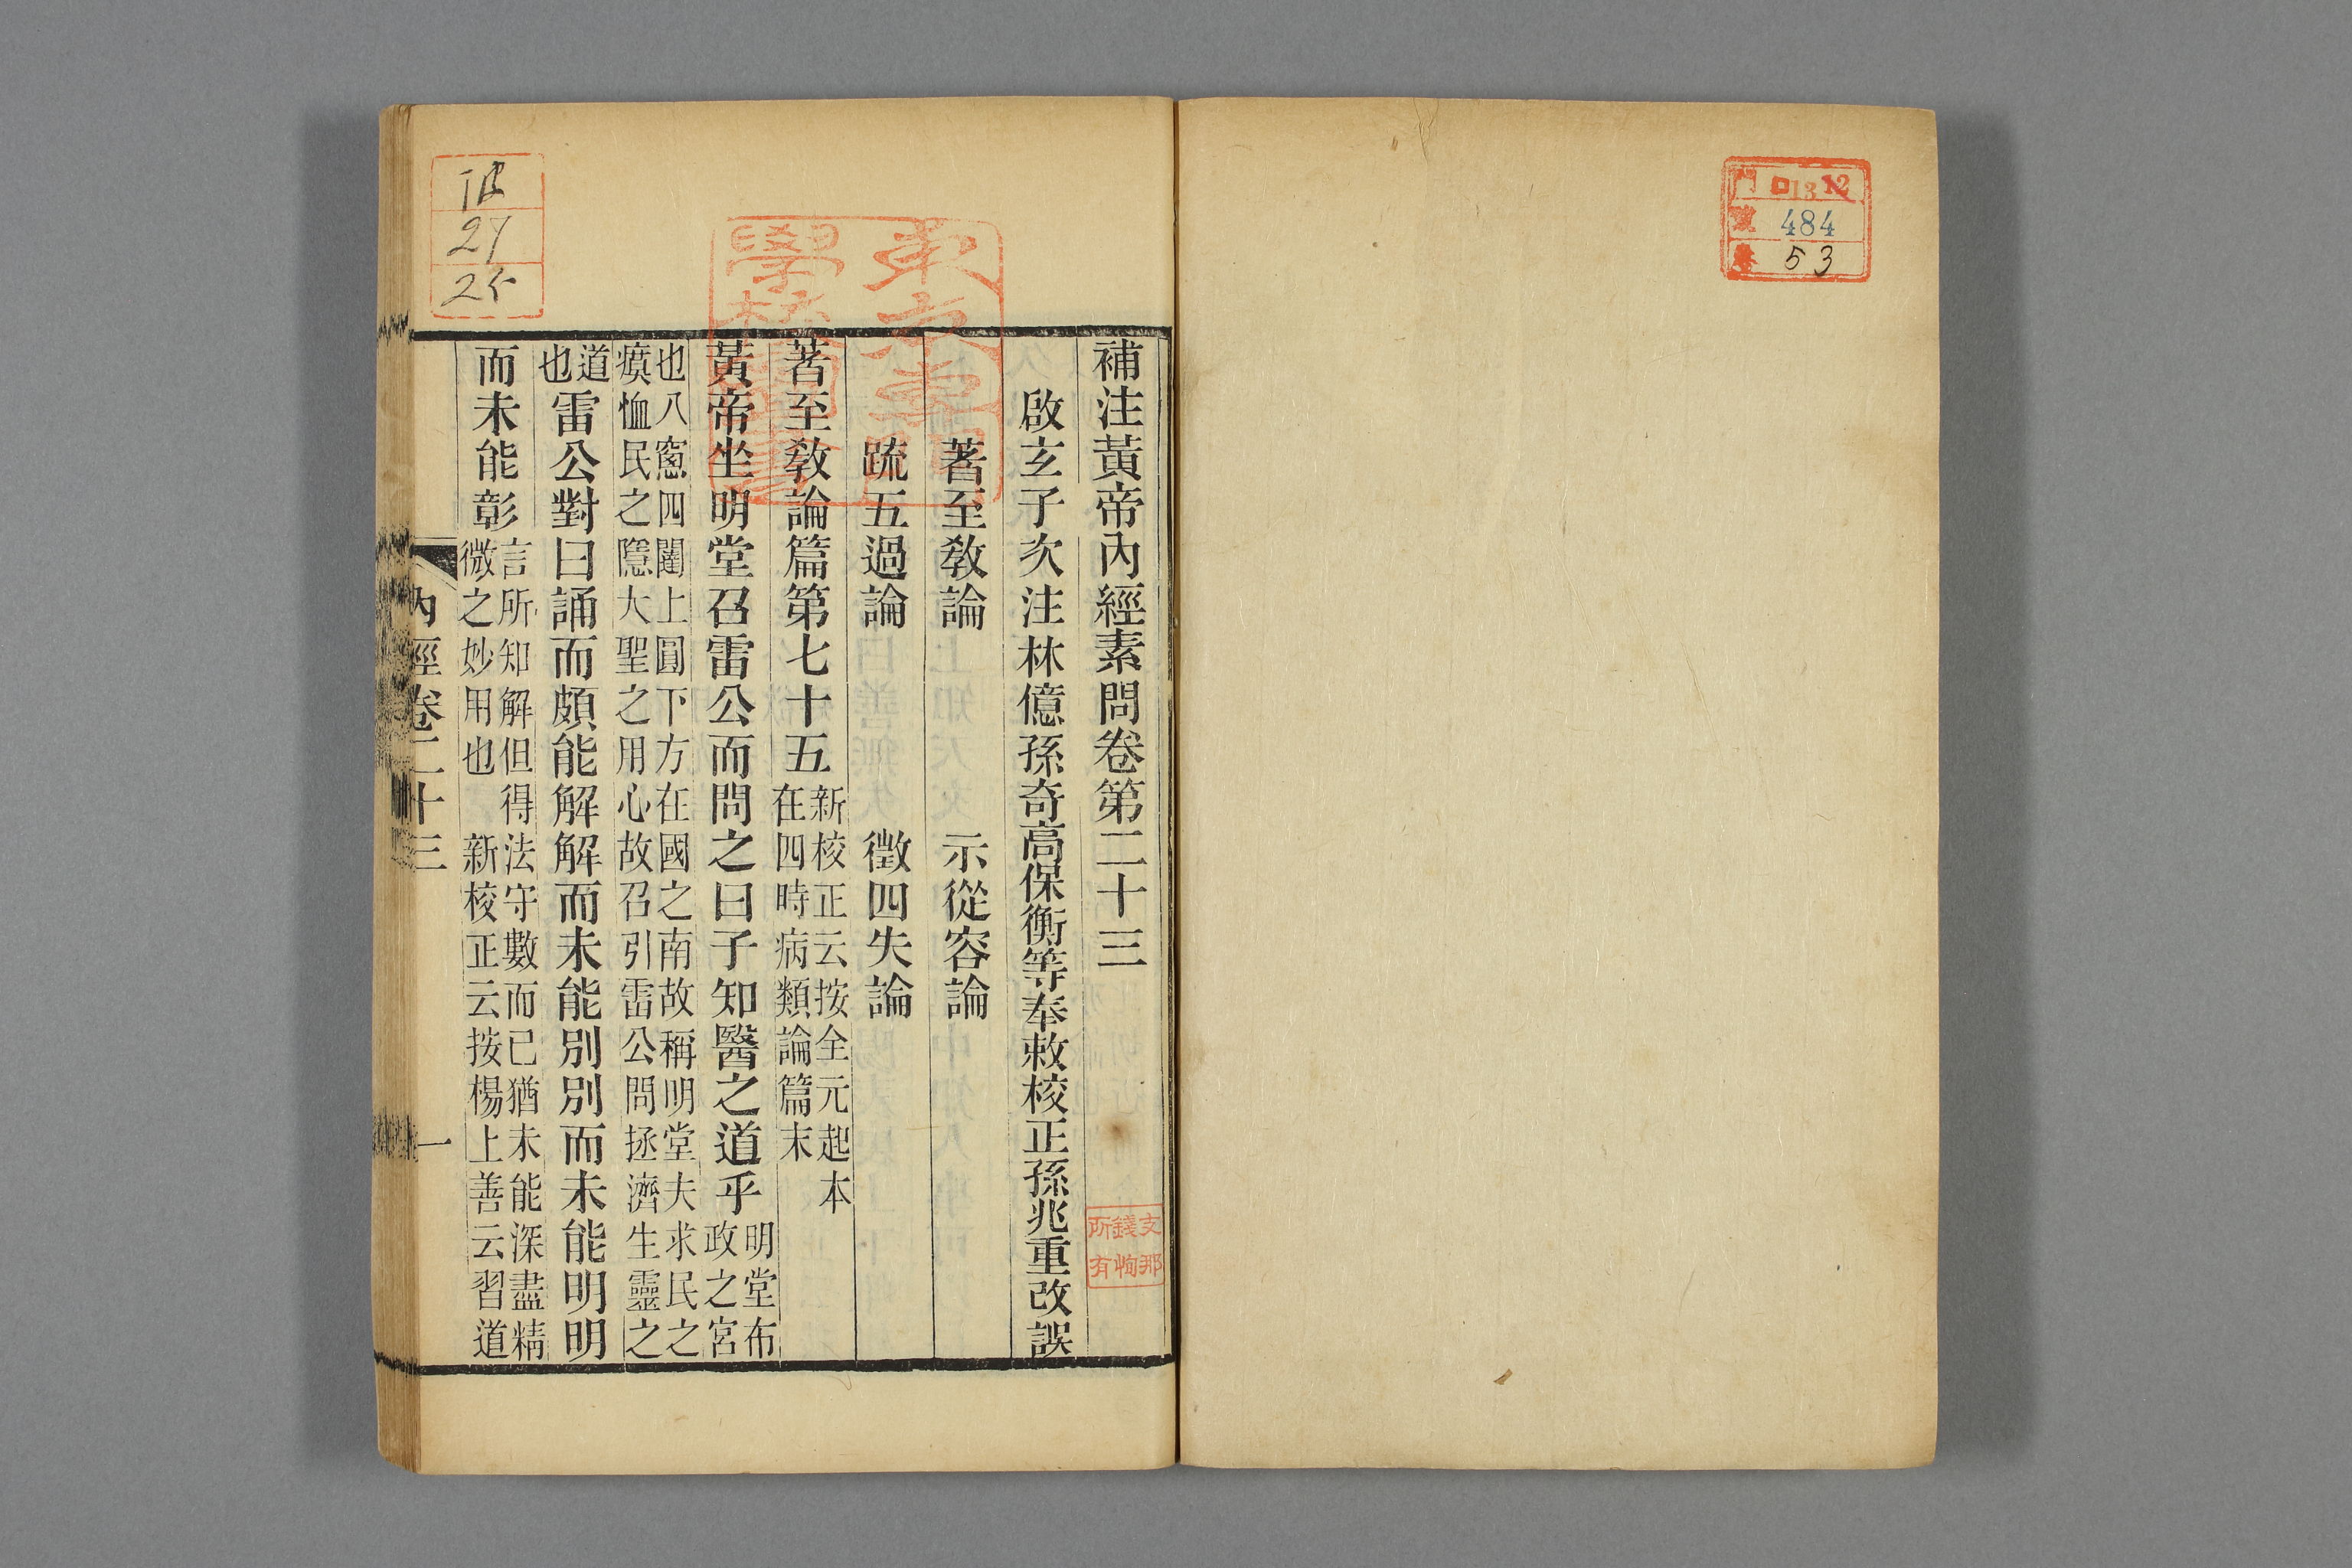 門 ロ13 12
號 484
卷 53
補注黃帝內經素問卷第二十三
啟玄子次注林億孫奇高保衡等奉敕校正孫兆重改誤
著至教論 示從容論
疏五過論 徵四失論
著至教論篇第七十五
新校正云按全元起本
在四時病類論篇末
黃帝坐明堂召雷公而問之曰子知醫之道乎
明堂布
政之宮
也八窻四闥上圓下方在國之南故稱明堂夫求民之
瘼恤民之隱大聖之用心故召引雷公問拯濟生靈之
道
也
雷公對曰誦而頗能解解而未能別別而未能明明
而未能彰
言所知解但得法守數而已猶未能深盡精
微之妙用也 新校正云按楊上善云習道
內經卷二十三
一
支那
錢恂
所有
27
25